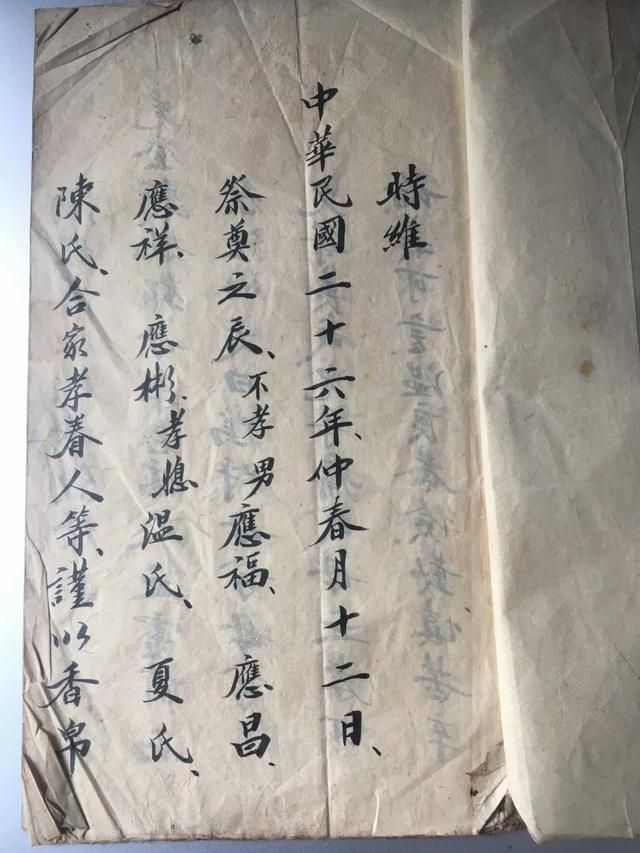 時維
中華民國二十六年、仲春月十二日、
祭奠之辰、不孝男應福、應昌、
應祥、應彬、孝媳温氏、夏氏、
陳氏、合家孝眷人等、謹以香帛